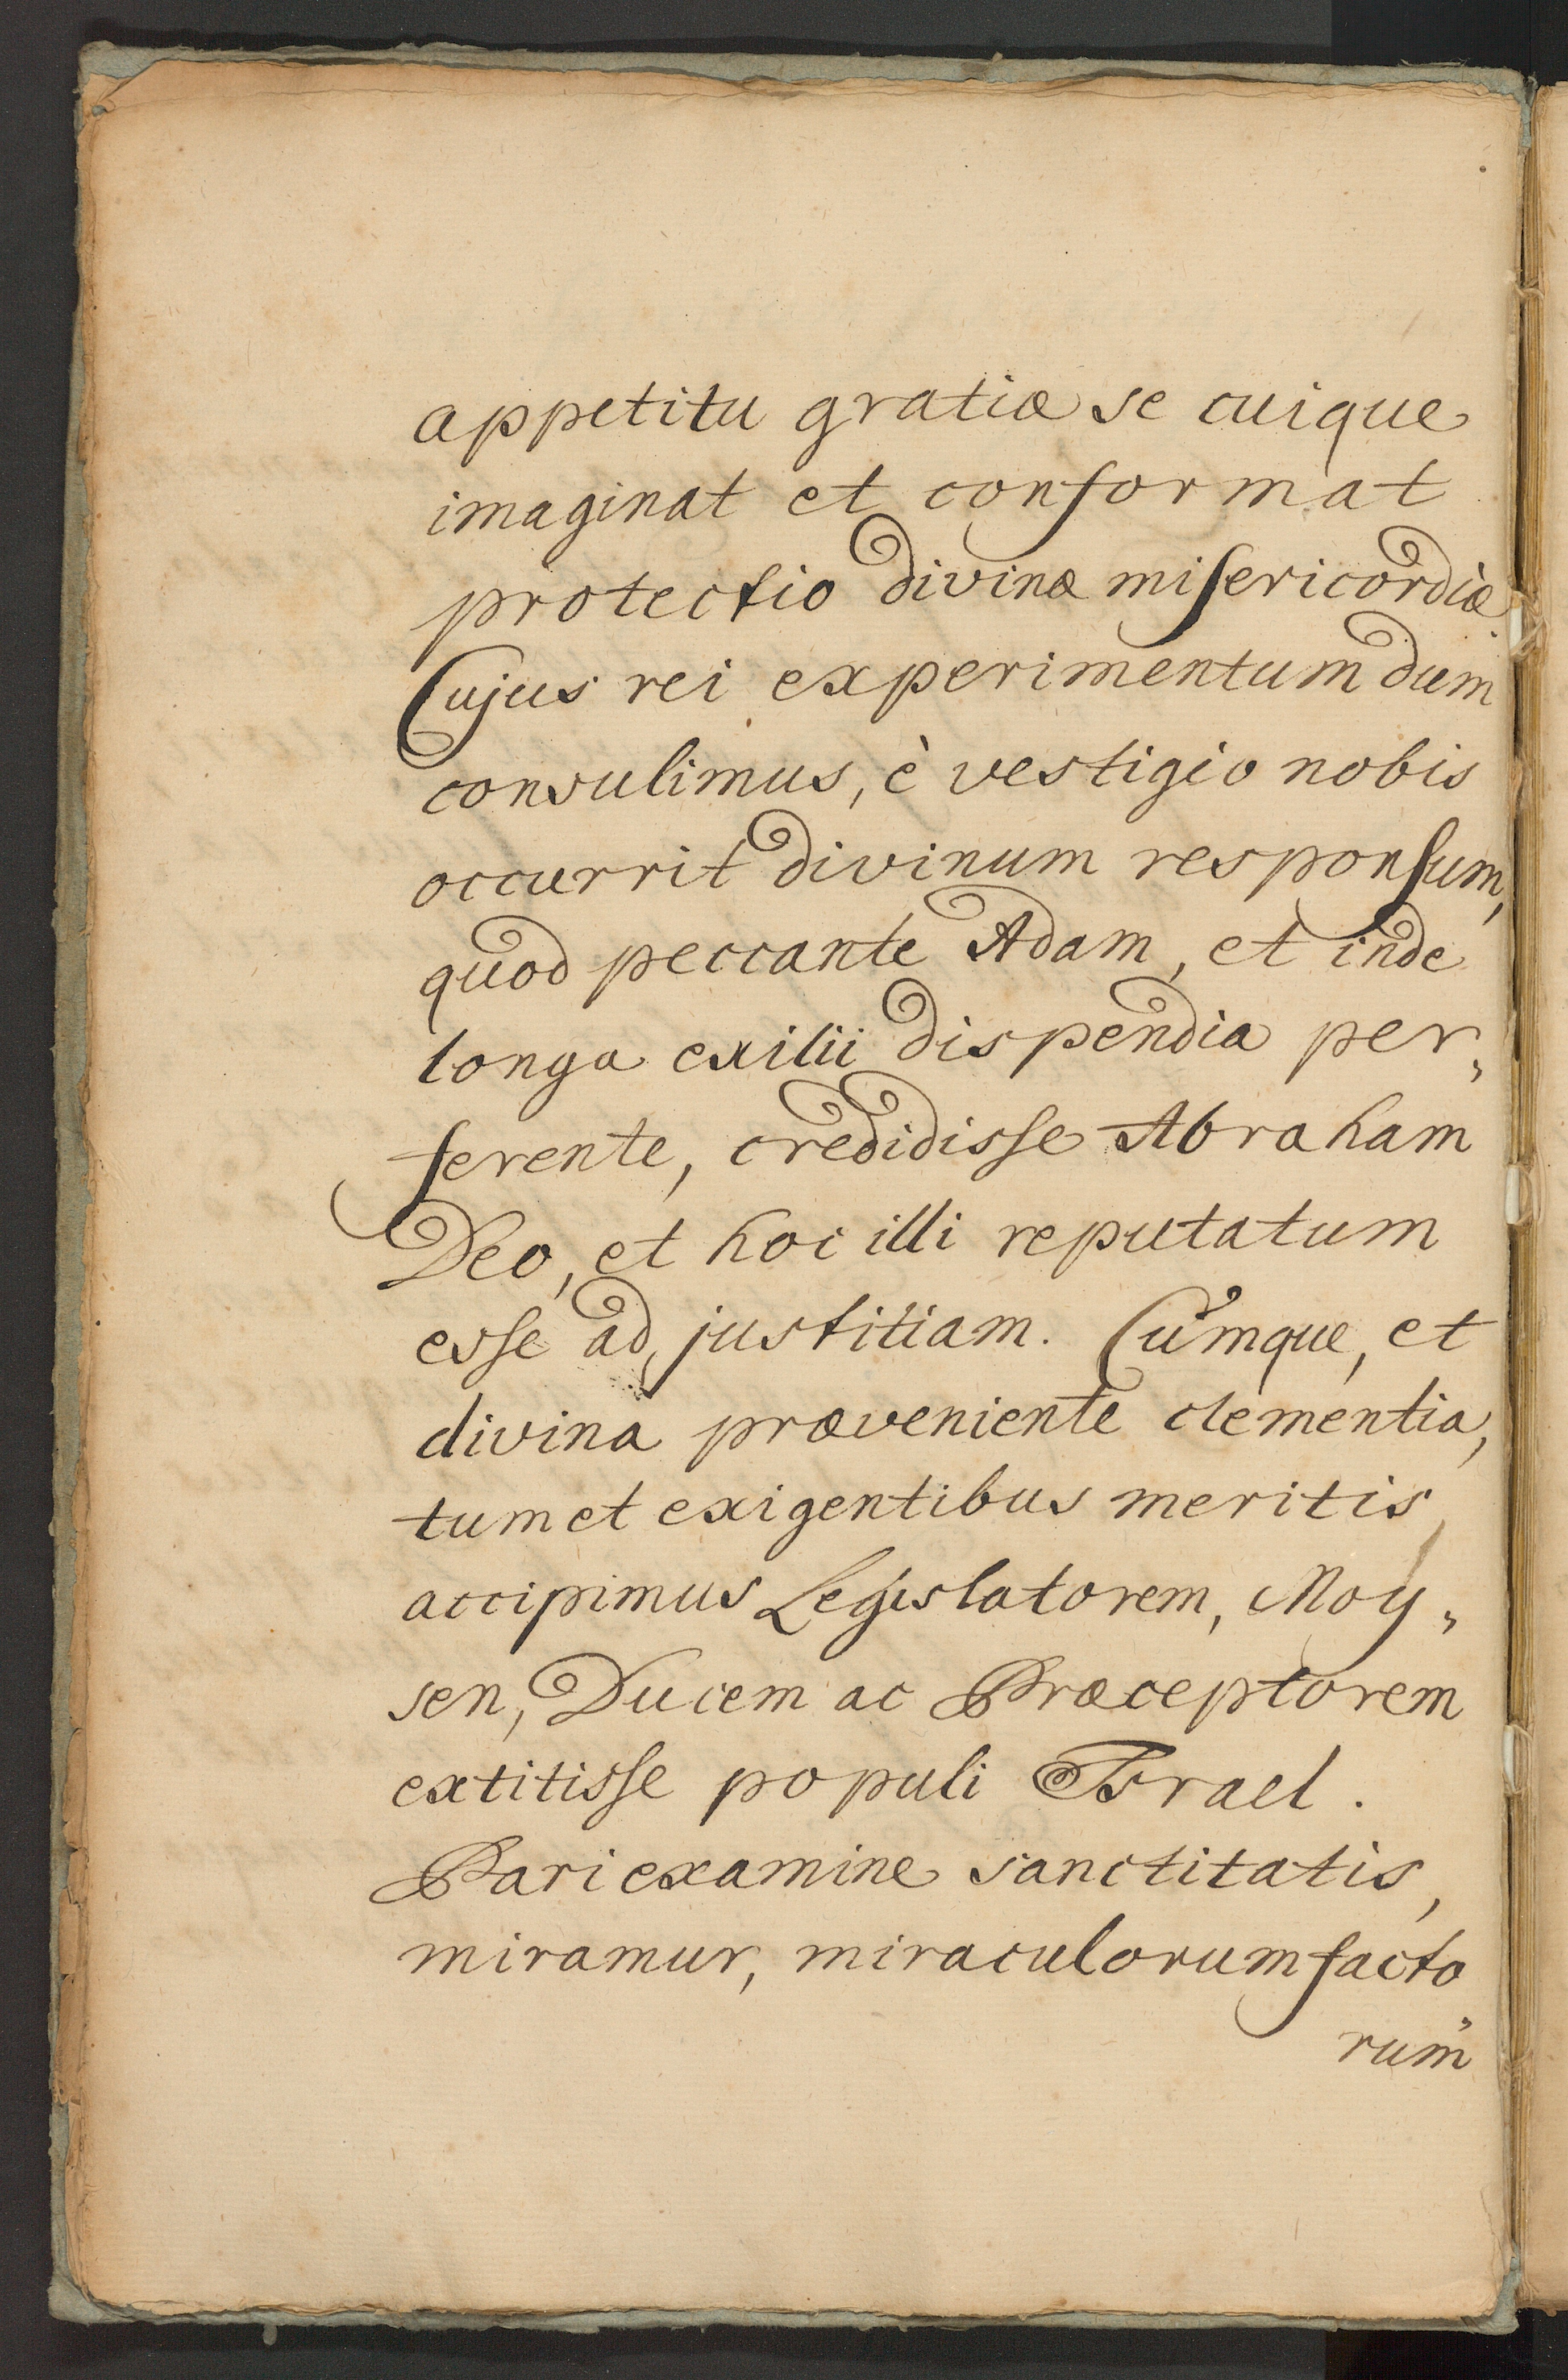 appetitu gratiæ se cuique
imaginat et conformat
protectio divinæ misericordiæ.
Cujus rei experimentum dum
consulimus, è vestigio nobis
occurrit divinum responsum,
quod peccante Adam, et inde
longa exilii dispendia per„
ferente, credidisse Abraham
Deo, et hoc illi reputatum
esse ad justitiam. Cumque, et
divina præveniente clementia,
tum et exigentibus meritis,
accipimus Legislatorem, Moy„
sen, Ducem ac Præceptorem
extitisse populi Israel.
Pari examine sanctitatis,
miramur, miraculorum facto„
rum